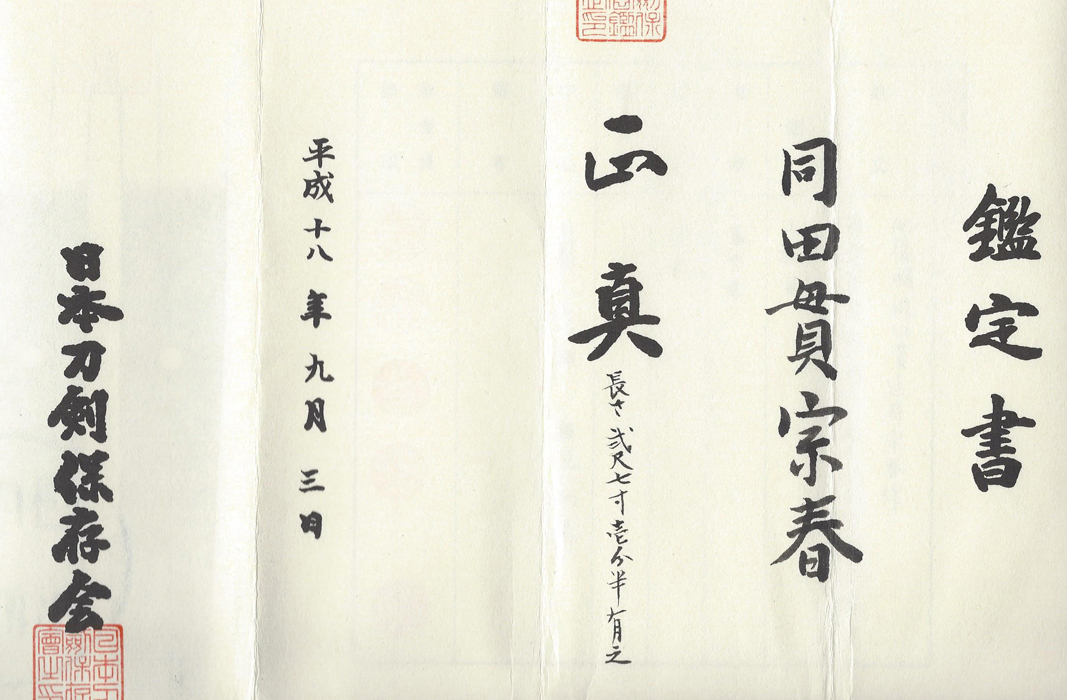 鑑定書
同田貫宗春
正真
長さ弐尺七寸壱分半有之
平成十八年九月三日
日本刀剣保存会